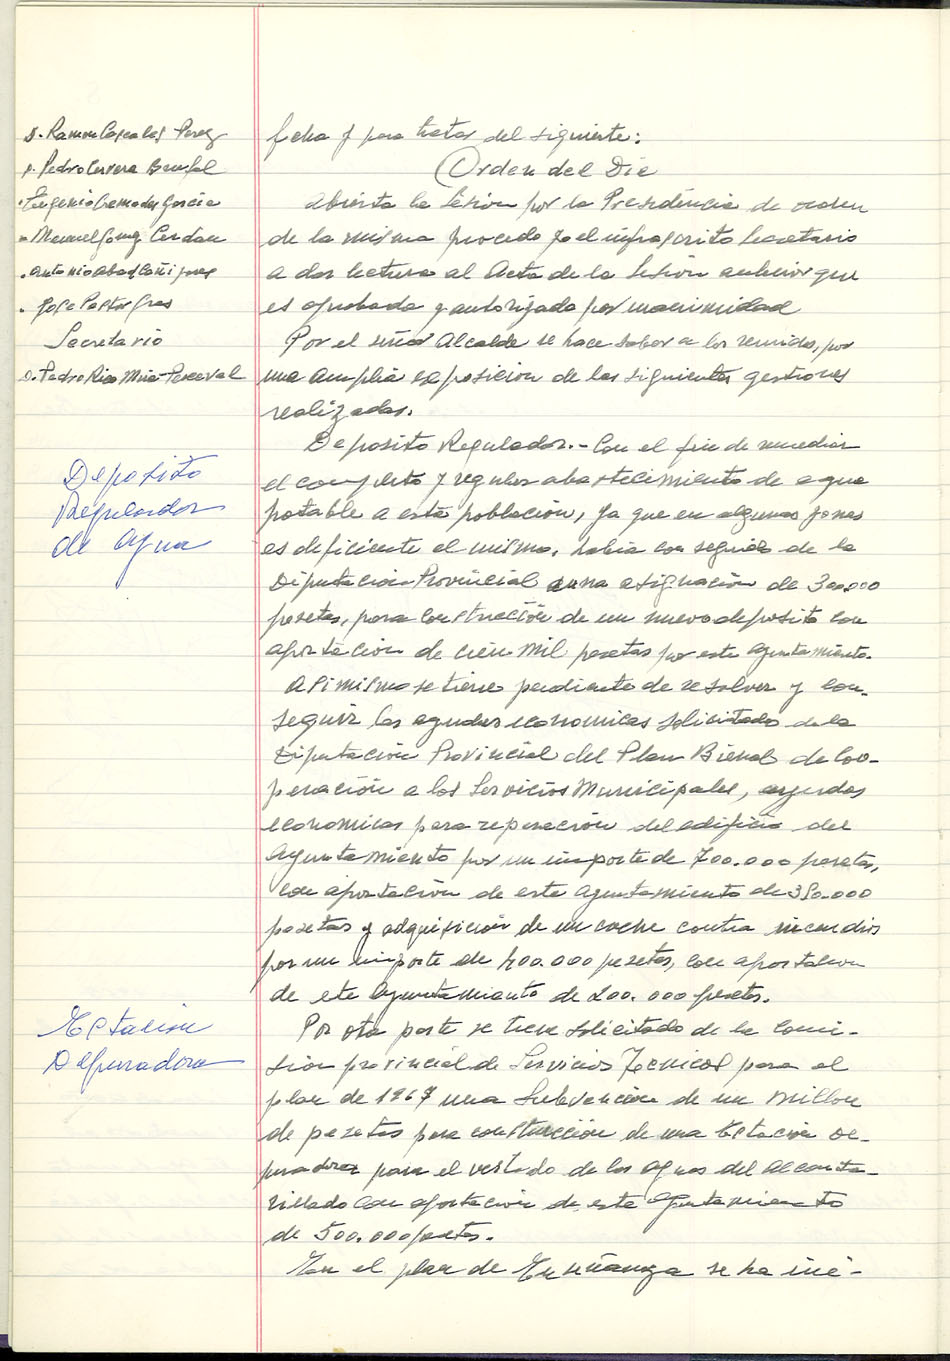 D. Ramon Cascales Perez
D. Pedro Cervera Berufal
Eugenio Cremades Garcia
Manuel Gomez Cerdan
Antonio Abad Cañizares
Jose Pastor Gras
Secretario
D. Pedro Rico Mira-Perceval
fecha y para tratar del siguiente:
Orden del Dia
Abierta la Sesion por la Presidencia de orden
de la misma procedo yo el infrascrito Secretario
a dar lectura al Acta de la Sesion anterior que
es aprobada y autorizada por unanimidad
Por el señor Alcalde se hace saber a los reunidos, por
una amplia exposicion de las siguientes gestiones
realizadas.
Deposito
Regulador
de agua
Deposito Regulador.- Con el fin de remediar
el completo y regular abastecimiento de agua
potable a esta poblacion, ya que en algunas zonas
es deficiente el mismo, habia conseguido de la
Diputacion Provincial una asignacion de 300.000
pesetas, para construcción de un nuevo deposito con
aportacion de cien mil pesetas por este Ayuntamiento.
Asimismo se tiene pendiente de resolver y con-
seguir las ayudas economicas solicitadas de la
Diputación Provincial del Plan Bienal de Coo-
peración a los Servicios Municipales, ayudas
economicas para reparación del edificio del
Ayuntamiento por un importe de 700.000 pesetas,
con aportación de este Ayuntamiento de 350.000
pesetas y adquisición de un coche contra incendios
por un importe de 400.000 pesetas, con aportacion
de este Ayuntamiento de 200.000 pesetas.
Estacion
Depuradora
Por otra parte se tiene solicitado de la Comi-
sion provincial de Servicios Tecnicos para el
plan de 1967 una Subvencion de un millon
de pesetas para construcción de una Estacion De-
puradora para el vertado de las aguas del alcanta-
rillado con aportacion de este Ayuntamiento
de 500.000 pesetas.
En el plan de Enseñanza se ha ini-